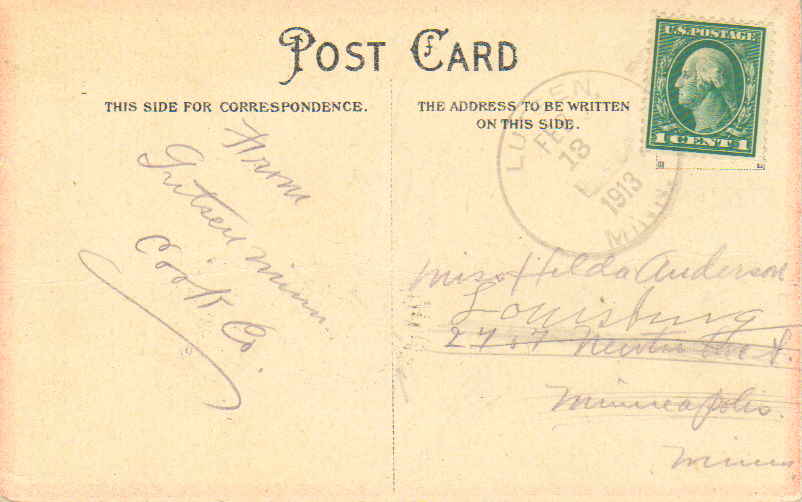 POST CARD
THIS SIDE FOR CORRESPONDENCE.
THE ADDRESS TO BE WRITTEN
ON THIS SIDE.
U.S. POSTAGE
1 CENT 1
LUTSEN, MINN.
FEB
13
1913
From
Lutsen Minn.
Cook Co.
Miss Hilda Anderson
Louisburg
Newton Ave N.
Minneapolis.
Minn